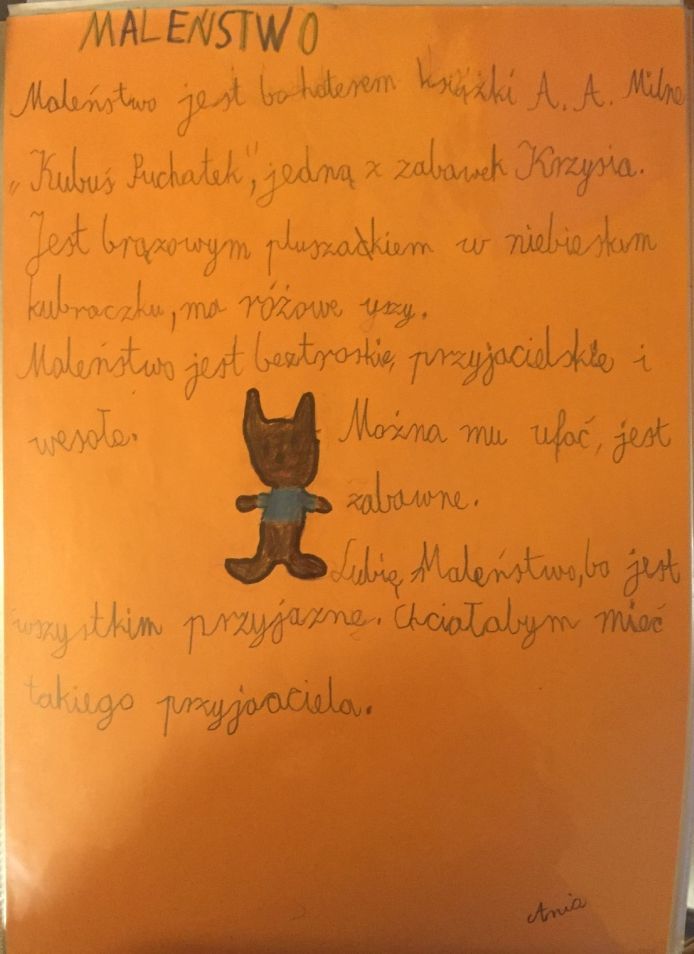 MALEŃSTWO
Maleństwo jest bohaterem książki A. A. Milne
„Kubuś Puchatek”, jedną z zabawek Krzysia.
Jest brązowym pluszakiem w niebieskim
kubraczku, ma różowe uszy.
Maleństwo jest beztroskie, przyjacielskie i
wesołe. Można mu ufać, jest
zabawne.
Lubię Maleństwo, bo jest
wszystkim przyjazne. Chciałabym mieć
takiego przyjaaciela.
Ania